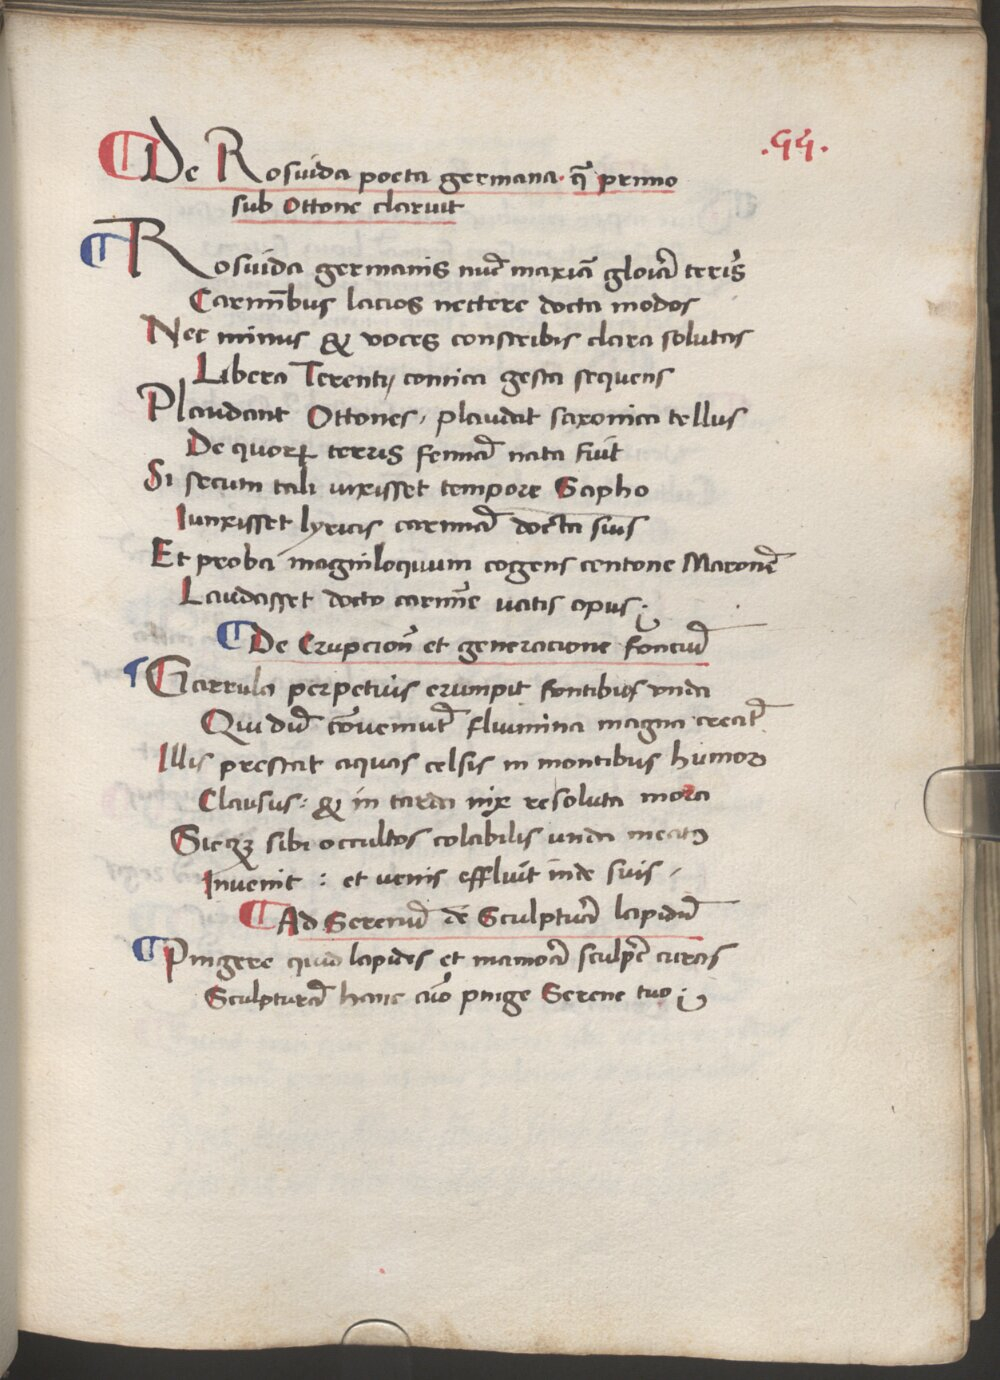 .55.
De Rosuida poeta germana. q̄ primo
sub Ottone claruit
Rosuida germanis nūc maxīa gloīa terīs
Carmībus lacios nectere docta modos
Nec minus & voces conscribis clara solutas
Libera Terentij comica gesta sequens
Plaudant Ottones, plaudat saxonica tellus
De quorꝝ terris femīa nata fuit
Si secum tali vixisset tempore Sapho
Iunxisset lyricis carmīa docta suis
Et proba magniloquum cogens centone Maronē
Laudasset docto carmīe vatis opus;
De Erupcionē et generacione fonciū
Garrula perpetuis erumpit fontibus vnda
Qui dū cōueniūt flumina magna creāt.
Illis prestat aquas celsis in montibus humor
Clausus: & in tarda nix resoluta mora
Sicqꝫ sibi occultos colabilis unda meatꝰ
Invenit: et venis effluit inde suis.
Ad Serenū de Sculptura lapidū
Pingere quid lapides et marmora sculpē curas
Sculpturā hanc aīo pinge Serene tuo;